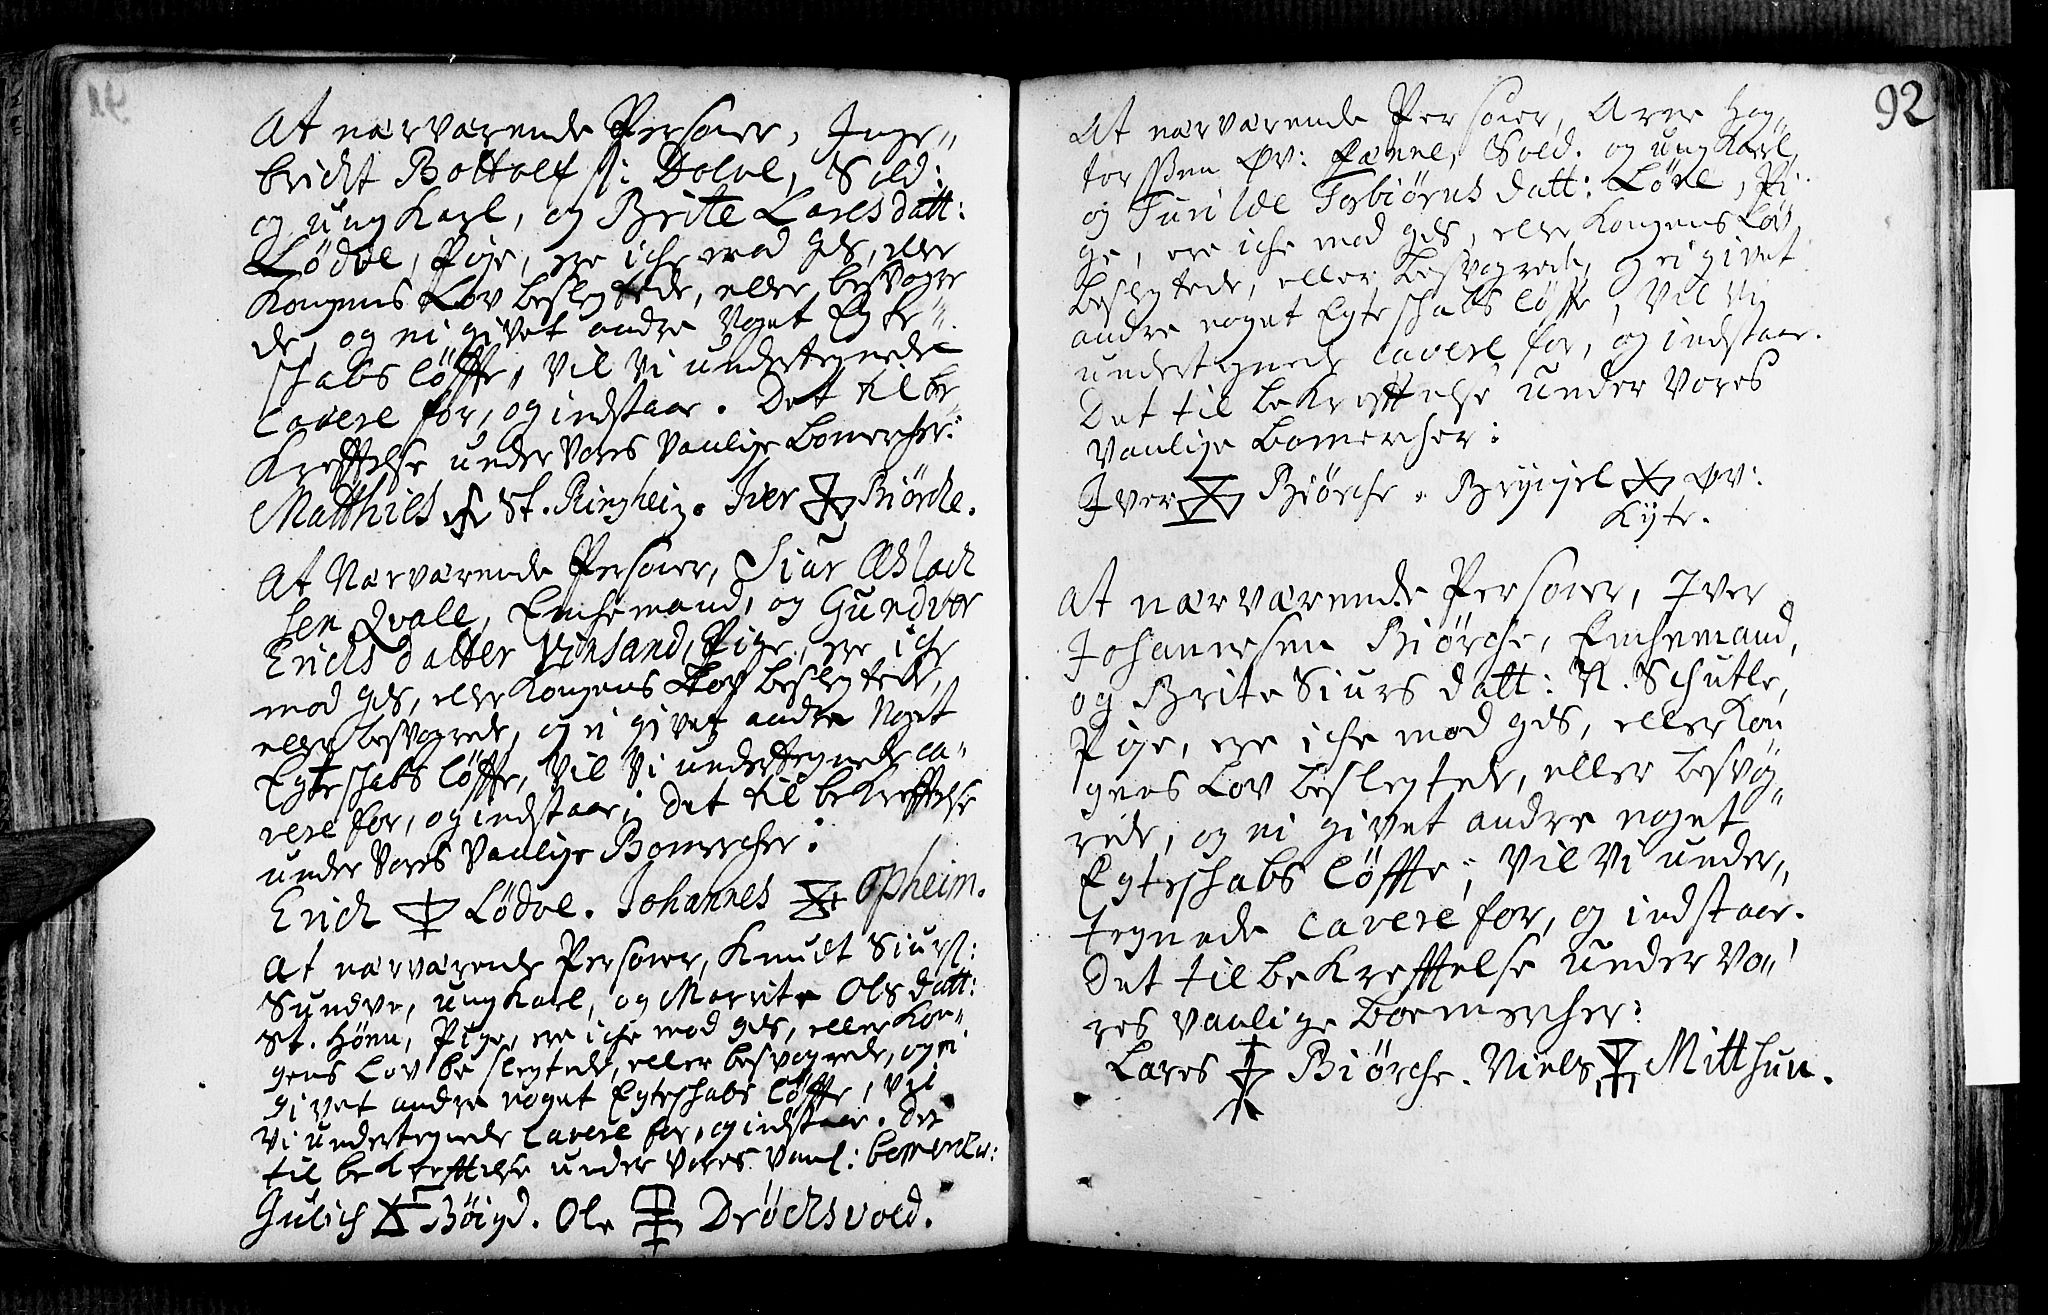 At nærværende Personer, Inge„
bricht Bottolf ss: Dolve, Sold:
og ung Karl, og Brite Larsdatt:
Lødve, Pige, ere iche mod Gds, eller
Kongens Lov beslegtede, eller besvogre
de, og ei givet andre noget Egte„
schabs løffte, vil vi undertegnede
cavere for, og indstaar. Det til be„
Krefftelse under vores vanlige bomercher:
Matthies St. Ringheim. Iver Biørche.
At Nærværende Personer, Siur Aslach
sen Qvale, Enchemand, og Gundvor
Erichsdatter Vinsand, Pige, ere iche
mod Gds, eller Kongens Lov beslegtede,
eller besvogrede, og ei givet andre noget
Egteschabs løffte, vil vi undertegnede ca„
vere for, og indstaar; Det til bekrefftelse
under vores vanlige Bomercher:
Erich Lødve. Johannes Opheim.
At nærværende Personer, Knudt Siurs:
Sundve, ung Karl, og Marrite Olsdatt:
St. Hönn, Pige, ere iche mod Gds, eller Kon„
gens Lov beslegtede, eller besvogrede, og ei
givet andre noget Egteschabs løffte, vil
vi undertegnede cavere for, og indstaar. Det
til bekrefftelse under vores vanl: bomercher:
Gulich Bøigd. Ole Drøchsvold.
92
At nærværende Personer, Arne Hag„
torssen Øv: Fenne, Sold. og ung Karl,
og Turilde Torbiørnsdatt: Løne, Pi„
ge, ere iche mod Gds, eller Kongens Lov
beslegtede, eller besvogrede, og ei givet
andre noget Egteschabs løffte, vil vi
undertegnede cavere for, og indstaar.
Det til bekrefftelse under vores
vanlige bomercher:
Iver Biørche. Brygjel Øv:
Kyte.
At nærværende Personer, Iver
Johannesen Biørche, Enchemand,
og Brite Siursdatt: N. Schutle,
Pige, ere iche mod Gds, eller Kon
gens Lov beslegtede, eller besvog„
rede, og ei givet andre noget
Egteschabs løffte, vil vi under„
tegnede cavere for, og indstaar.
Det til bekrefftelse under vo„
res vanlige boemercher:
Lares Biørche. Niels Mitthun.